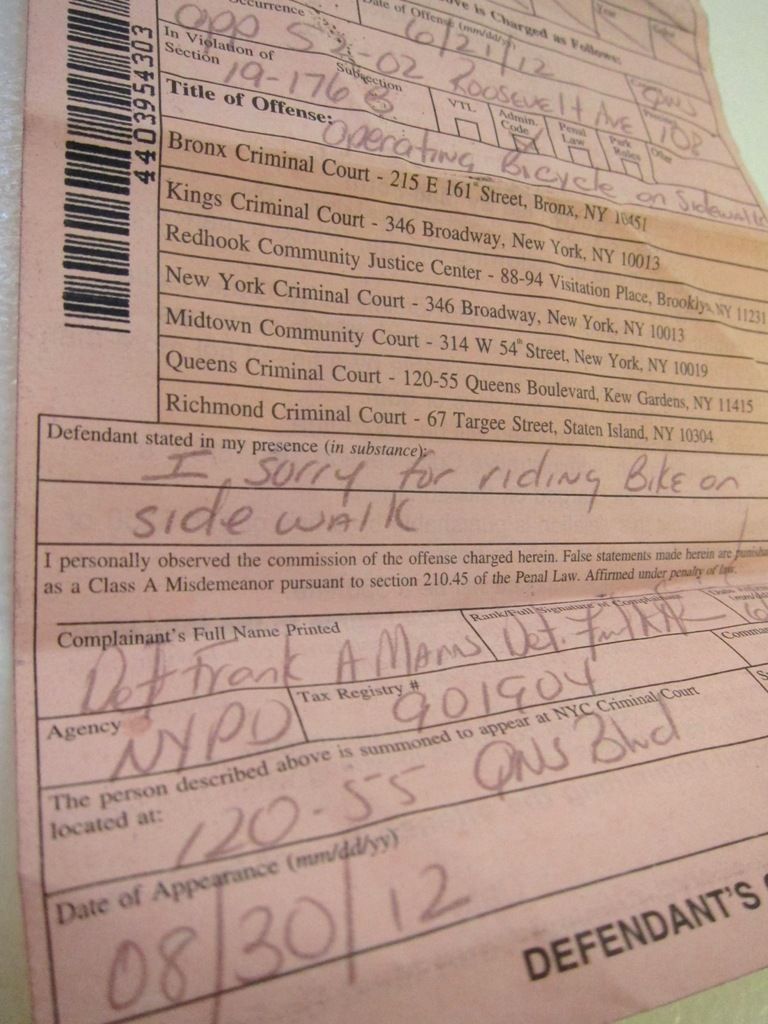 ve is Charged as Follows:
Occurrence
Date of Offense (mm/dd/yy)
6/21/12
Opp 52-02 Roosevelt Ave
Qns
In Violation of Section
Subsection
19-176 B
VTL
Admin. Code
Penal Law
Park Rules
Other
Precinct
108
Title of Offense:
Operating Bicycle on Sidewalk
4403954303
Bronx Criminal Court - 215 E 161st Street, Bronx, NY 10451
Kings Criminal Court - 346 Broadway, New York, NY 10013
Redhook Community Justice Center - 88-94 Visitation Place, Brooklyn, NY 11231
New York Criminal Court - 346 Broadway, New York, NY 10013
Midtown Community Court - 314 W 54th Street, New York, NY 10019
Queens Criminal Court - 120-55 Queens Boulevard, Kew Gardens, NY 11415
Richmond Criminal Court - 67 Targee Street, Staten Island, NY 10304
Defendant stated in my presence (in substance):
I, sorry for riding Bike on
side walk
I personally observed the commission of the offense charged herein. False statements made herein are punisha
as a Class A Misdemeanor pursuant to section 210.45 of the Penal Law. Affirmed under penalty of law.
Complainant's Full Name Printed
Rank/Full Signature of Complainant
Det Frank A Mann
Det.
Agency
NYPD
Tax Registry #
901904
Comma
The person described above is summoned to appear at NYC Criminal Court
located at:
120-55 QNS Blvd
Date of Appearance (mm/dd/yy)
08/30/12
DEFENDANT'S